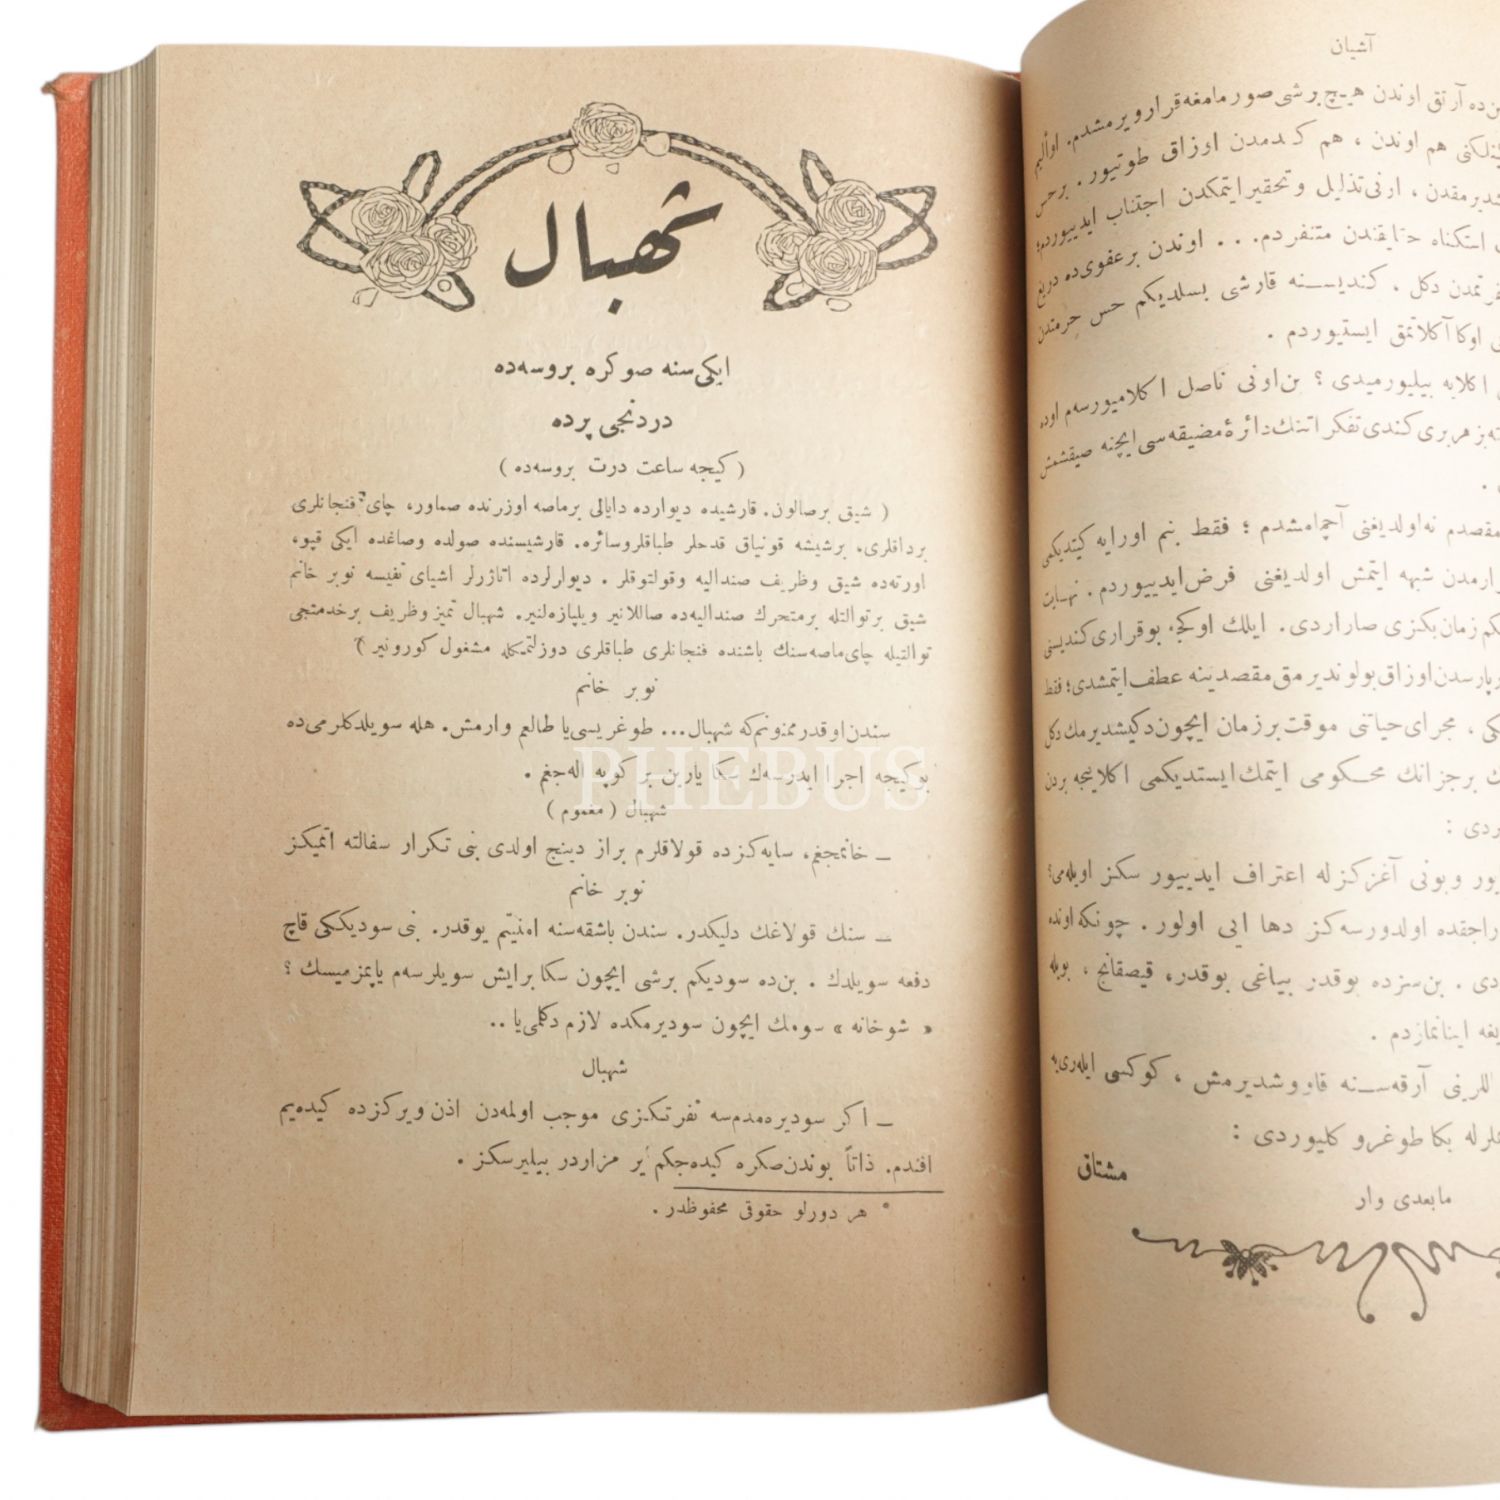 شهبال
ایکی سنه صوکره بروسه‌ده
دردنجی پرده
( کیجه ساعت درت بروسه‌ده )
( شیق برصالون. قارشیده دیوارده دایالی برماصه اوزرنده صماور، چای فنجانلری
برداقلری، برشیشه قونیاق قدحلر طباقلر وسائره. قارشیسنده صولده وصاغده ایکی قپو،
اورته‌ده شیق وظریف صندالیه وقولتوقلر. دیوارلرده اتاژرلر اشیای نفیسه نوبر خانم
شیق برتوالتله برمتحرك صندالیه‌ده صاللانیر ویلپازه‌لنیر. شهبال تمیز وظریف برخدمتجی
توالتیله چای ماصه‌سنك باشنده فنجانلری طباقلری دوزلتمکله مشغول کورونیر )
نوبر خانم
سندن اوقدر ممنونم‌که شهبال... طوغریسی یا طالعم وارمش. هله سویلدکلرمی ده
بوکیجه اجرا ایدرسه‌ك سکا یارین بر کوپه اله‌جغم .
شهبال ( مغموم )
ــ خانمجغم، سایه‌کزده قولاقلرم براز دینج اولدی بنی تکرار سفالته اتمیکز
نوبر خانم
ــ سنك قولاغك دلیکدر. سندن باشقه‌سنه امنیتم یوقدر. بنی سودیککی قاچ
دفعه سویلدك . بن‌ده سودیکم برشی ایچون سکا برایش سویلرسه‌م یاپمزمیسك ؟
« شوخانه » سومك ایچون سودیرمکده لازم دکلمی یا ..
شهبال
ــ اکر سودیره‌مدمسه نفرتکزی موجب اولمه‌دن اذن ویرکزده کیده‌یم
افندم. ذاتاً بوندن صکره کیده‌جکم یر مزاردر بیلیرسکز .
* هر دورلو حقوقی محفوظدر .
آشیان
ده آرتق اوندن هیچ برشی صورمامغه قرار ویرمشدم. اوألیم
هم اوندن ، هم کندمدن اوزاق طوتیور . برحس
، ارنی تذلیل وتحقیر ایتمکدن اجتناب ایدییوردم؛
استکناه حقایقندن متنفردم... اوندن برعفوی ده دریغ
دکل ، کندیسنه قارشی بسلدیکم حس حرمتدن
اوکا آکلاتمق ایستیوردم .
اکلایه بیلیورمیدی ؟ بن‌اونی ناصل اکلامیورسه‌م اوده
هربری کندی تفکراتنك دائرهٔ مضیقه‌سی ایچنه صیقشمش
مقصدم نه‌اولدیغنی آچمامشدم ؛ فقط بنم اورایه کیتدیکمی
شبهه ایتمش اولدیغنی فرض‌ایدییوردم . نهایت
زمان بکزی صاراردی. ایلك اوکجه بوقراری کندیسنی
اوزاق بولوندیرمق مقصدینه عطف ایتمشدی؛ فقط
، مجرای حیاتنی موقت برزمان ایچون دکیشدیرمك دکل
برجزانك محکومی ایتمك ایستدیکمی اکلاینجه بردن
وبونی آغزکزله اعتراف ایدییور سکز اویله‌می؟
اولدورسه‌کز دها ایی اولور . چونکه اونده
. بن‌سزده بوقدر بیاغی بوقدر، قیصقانج ، بویله
اینانمازدم .
اللرینی آرقه‌سنه قاووشدیرمش ، کوکسی ایله‌ری‌یه
بکا طوغرو کلیوردی :
مشتاق
مابعدی وار
PHEBUS